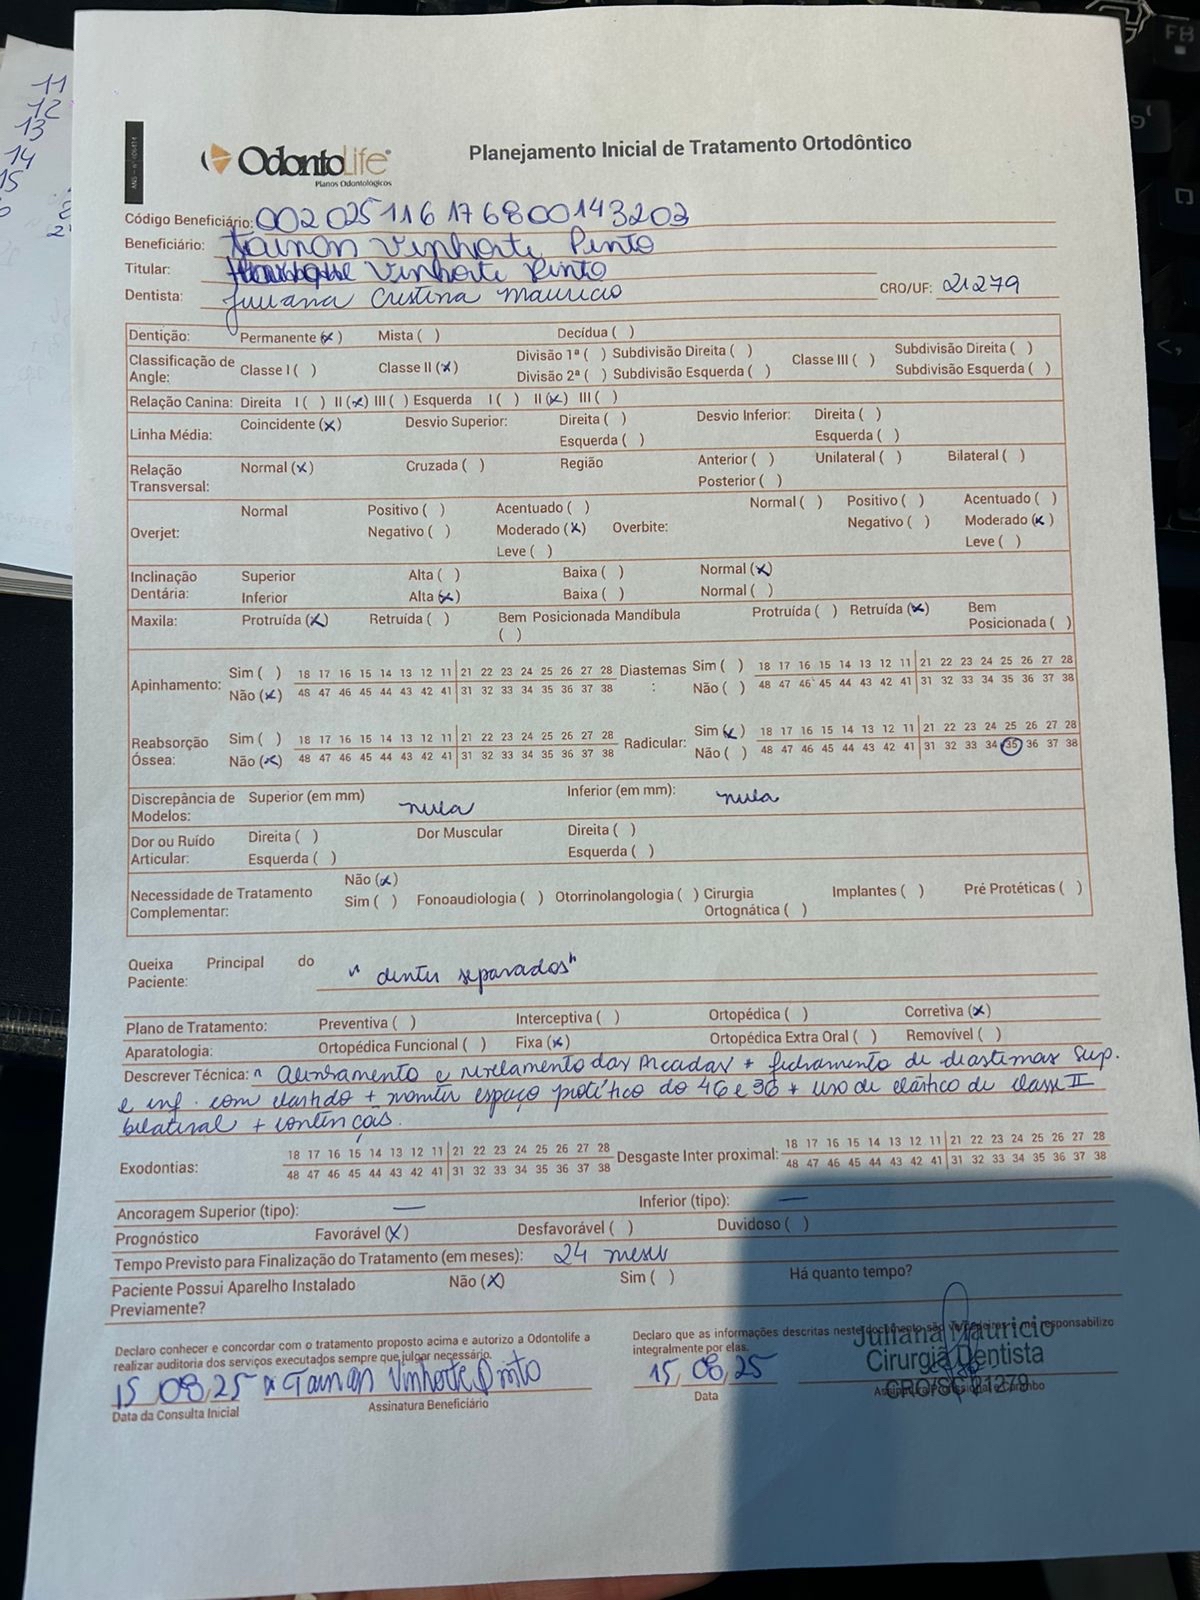 11
12
13
14
15
F8
ANS - nº 406414
OdontoLife
Planos Odontológicos
Planejamento Inicial de Tratamento Ortodôntico
Código Beneficiário: 002025116176800143203
Beneficiário: Tainan Vinhorte Pinto
Titular: Vinhorte Pinto
Dentista: Juliana Cristina Mauricio CRO/UF: 21279
Dentição: Permanente (x) Mista ( ) Decídua ( )
Classificação de Angle: Classe I ( ) Classe II (x) Divisão 1ª ( ) Subdivisão Direita ( ) Classe III ( ) Subdivisão Direita ( )
Divisão 2ª ( ) Subdivisão Esquerda ( ) Subdivisão Esquerda ( )
Relação Canina: Direita I ( ) II (x) III ( ) Esquerda I ( ) II (x) III ( )
Linha Média: Coincidente (x) Desvio Superior: Direita ( ) Desvio Inferior: Direita ( )
Esquerda ( ) Esquerda ( )
Relação Transversal: Normal (x) Cruzada ( ) Região Anterior ( ) Unilateral ( ) Bilateral ( )
Posterior ( )
Overjet: Normal Positivo ( ) Acentuado ( ) Overbite: Normal ( ) Positivo ( ) Acentuado ( )
Negativo ( ) Moderado (x) Negativo ( ) Moderado (x)
Leve ( ) Leve ( )
Inclinação Dentária: Superior Alta ( ) Baixa ( ) Normal (x)
Inferior Alta (x) Baixa ( ) Normal ( )
Maxila: Protruída (x) Retruída ( ) Bem Posicionada ( ) Mandíbula Protruída ( ) Retruída (x) Bem Posicionada ( )
Apinhamento: Sim ( ) 18 17 16 15 14 13 12 11 21 22 23 24 25 26 27 28 Diastemas : Sim ( ) 18 17 16 15 14 13 12 11 21 22 23 24 25 26 27 28
Não (x) 48 47 46 45 44 43 42 41 31 32 33 34 35 36 37 38 Não ( ) 48 47 46 45 44 43 42 41 31 32 33 34 35 36 37 38
Reabsorção Óssea: Sim ( ) 18 17 16 15 14 13 12 11 21 22 23 24 25 26 27 28 Radicular: Sim (x) 18 17 16 15 14 13 12 11 21 22 23 24 25 26 27 28
Não (x) 48 47 46 45 44 43 42 41 31 32 33 34 35 36 37 38 Não ( ) 48 47 46 45 44 43 42 41 31 32 33 34 35 36 37 38
Discrepância de Modelos: Superior (em mm) nula Inferior (em mm): nula
Dor ou Ruído Articular: Direita ( ) Dor Muscular Direita ( )
Esquerda ( ) Esquerda ( )
Necessidade de Tratamento Complementar: Não (x)
Sim ( ) Fonoaudiologia ( ) Otorrinolangologia ( ) Cirurgia Ortognática ( ) Implantes ( ) Pré Protéticas ( )
Queixa Principal do Paciente: " dentes separados"
Plano de Tratamento: Preventiva ( ) Interceptiva ( ) Ortopédica ( ) Corretiva (x)
Aparatologia: Ortopédica Funcional ( ) Fixa (x) Ortopédica Extra Oral ( ) Removível ( )
Descrever Técnica: " alinhamento e nivelamento das arcadas + fechamento de diastemas sup.
e inf. com elastico + manter espaço protético do 46 e 36 + uso de elástico de classe II
bilateral + contenção.
Exodontias: 18 17 16 15 14 13 12 11 21 22 23 24 25 26 27 28 Desgaste Inter proximal: 18 17 16 15 14 13 12 11 21 22 23 24 25 26 27 28
48 47 46 45 44 43 42 41 31 32 33 34 35 36 37 38 48 47 46 45 44 43 42 41 31 32 33 34 35 36 37 38
Ancoragem Superior (tipo): — Inferior (tipo): —
Prognóstico Favorável (x) Desfavorável ( ) Duvidoso ( )
Tempo Previsto para Finalização do Tratamento (em meses): 24 meses
Paciente Possui Aparelho Instalado Previamente? Não (x) Sim ( ) Há quanto tempo?
Declaro conhecer e concordar com o tratamento proposto acima e autorizo a Odontolife a
realizar auditoria dos serviços executados sempre que julgar necessário.
Declaro que as informações descritas neste documento são verdadeiras e me responsabilizo
integralmente por elas.
15,08,25 x Tainan Vinhorte Pinto
Data da Consulta Inicial Assinatura Beneficiário
15,08,25
Data
Juliana Mauricio
Cirurgiã Dentista
CRO/SC 21279
Assinatura Profissional e Carimbo